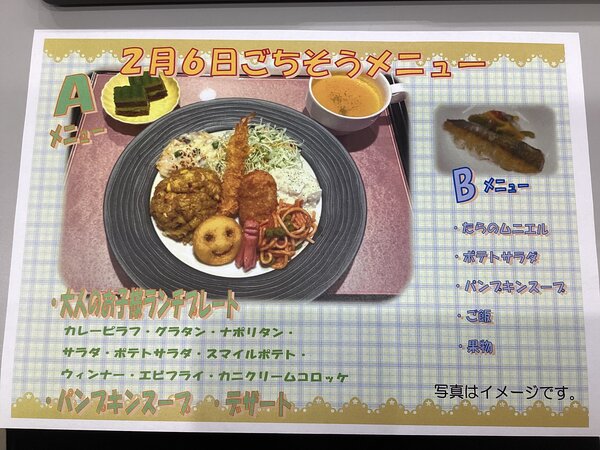 2月6日ごちそうメニュー
A
メニュー
・大人のお子様ランチプレート
カレーピラフ・グラタン・ナポリタン・
サラダ・ポテトサラダ・スマイルポテト・
ウィンナー・エビフライ・カニクリームコロッケ
・パンプキンスープ ・デザート
B メニュー
・たらのムニエル
・ポテトサラダ
・パンプキンスープ
・ご飯
・果物
写真はイメージです。